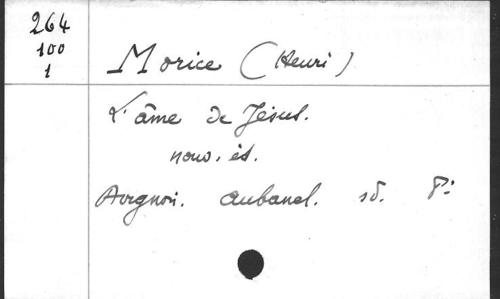 264
100
1
Morice (Henri)
L'âme de Jésus.
nouv. éd.
Avignon. Aubanel. sd. 8°